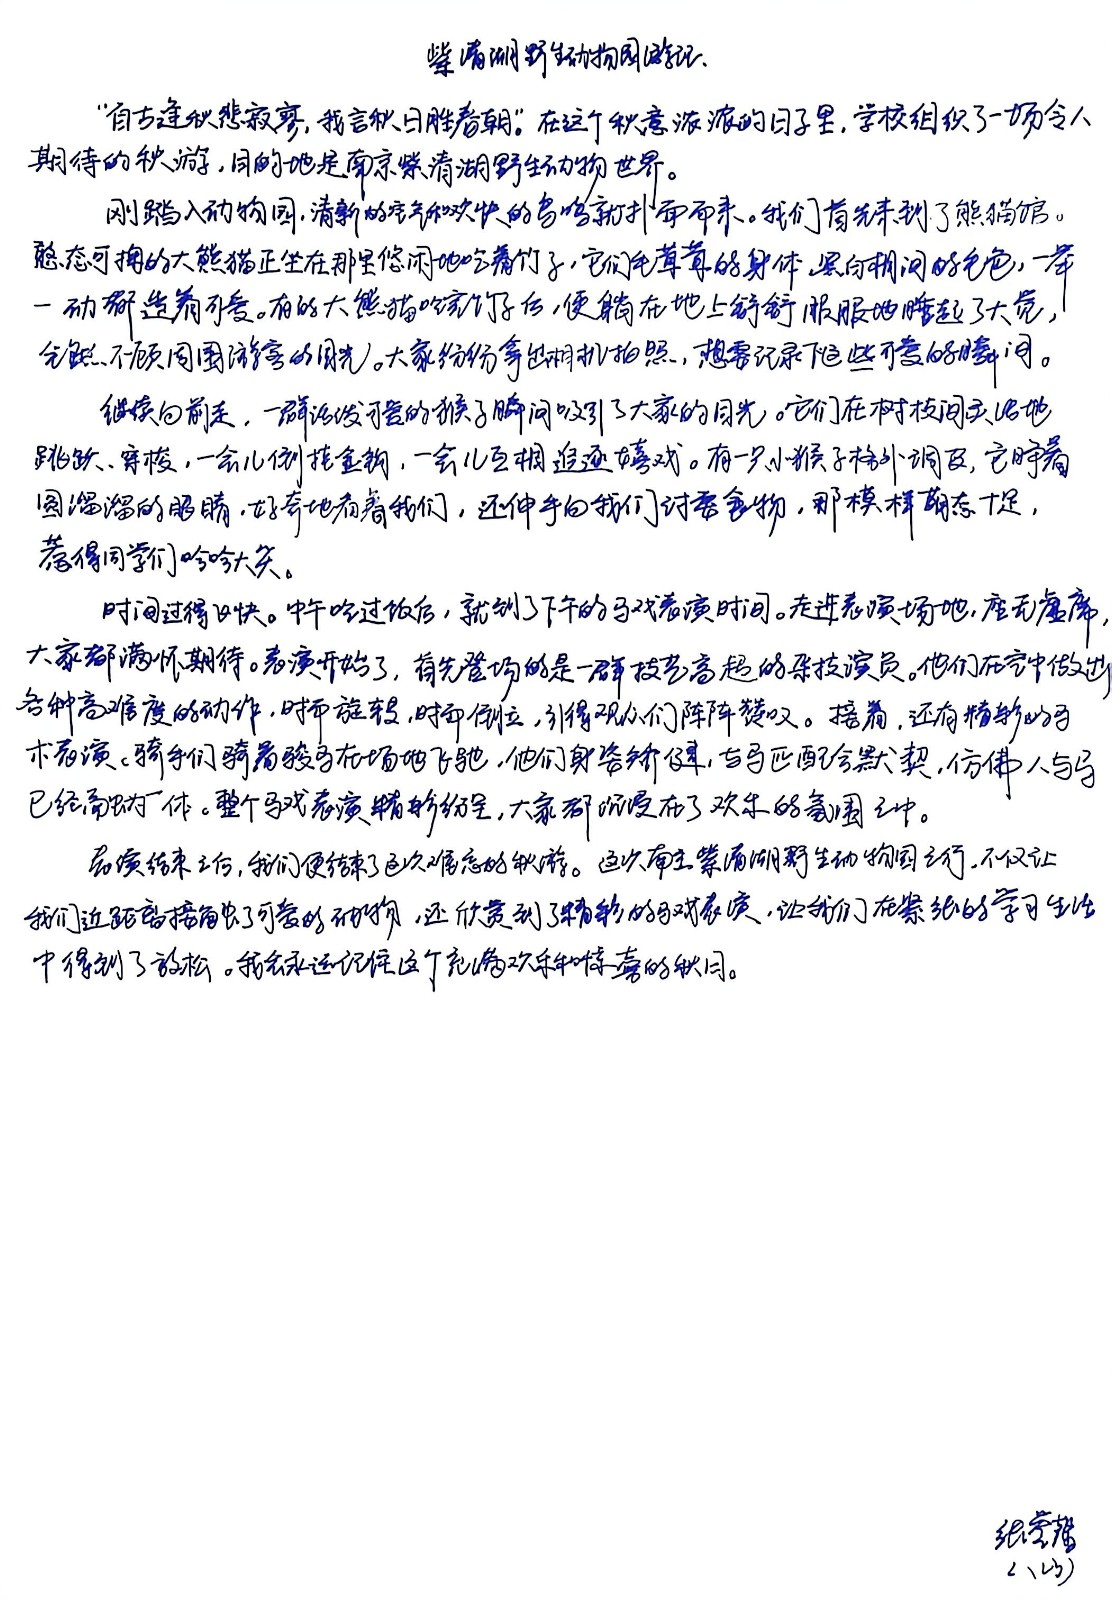 紫清湖野生动物园游记
“自古逢秋悲寂寥，我言秋日胜春朝”。在这个秋意浓浓的日子里，学校组织了一场令人
期待的秋游，目的地是南京紫清湖野生动物世界。
刚踏入动物园，清新的空气和欢快的鸟鸣就扑面而来。我们首先来到了熊猫馆。
憨态可掬的大熊猫正坐在那里悠闲地吃着竹子，它们毛茸茸的身体，黑白相间的毛色，一举
一动都透着可爱。有的大熊猫吃完竹子后，便躺在地上舒舒服服地睡起了大觉，
全然不顾周围游客的目光。大家纷纷拿出相机拍照，想要记录下这些可爱的瞬间。
继续向前走，一群活泼可爱的猴子瞬间吸引了大家的目光。它们在树枝间灵活地
跳跃、穿梭，一会儿倒挂金钩，一会儿互相追逐嬉戏。有一只小猴子格外调皮，它睁着
圆溜溜的眼睛，好奇地看着我们，还伸手向我们讨要食物，那模样萌态十足，
惹得同学们哈哈大笑。
时间过得飞快。中午吃过饭后，就到了下午的马戏表演时间。走进表演场地，座无虚席，
大家都满怀期待。表演开始了，首先登场的是一群技艺高超的杂技演员。他们在空中做出
各种高难度的动作，时而旋转，时而倒立，引得观众们阵阵赞叹。接着，还有精彩的马
术表演。骑手们骑着骏马在场地飞驰，他们身姿矫健，与马匹配合默契，仿佛人与马
已经融为一体。整个马戏表演精彩纷呈，大家都沉浸在了欢乐的氛围之中。
表演结束之后，我们便结束了这次难忘的秋游。这次南京紫清湖野生动物园之行，不仅让
我们近距离接触了可爱的动物，还欣赏到了精彩的马戏表演，让我们在紧张的学习生活
中得到了放松。我会永远记住这个充满欢乐和惊喜的秋日。
张